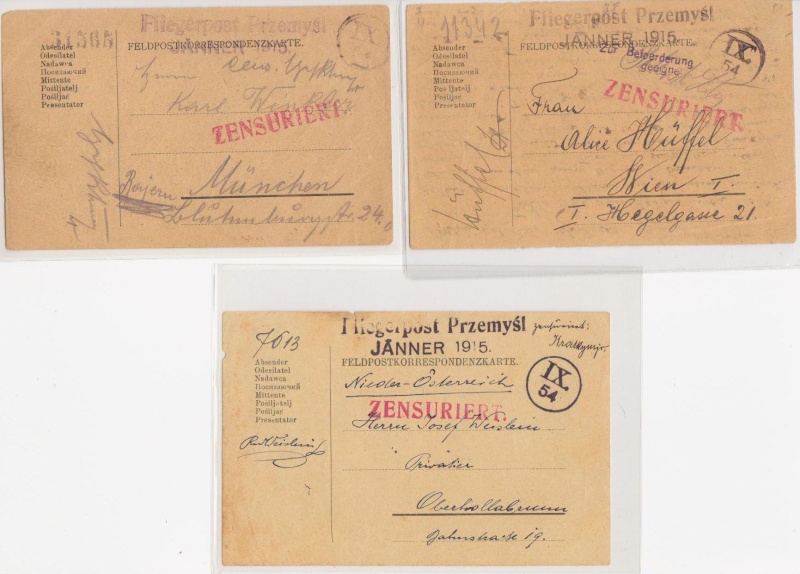 31568
Fliegerpost Przemyśl
JÄNNER 1915.
IX.
FELDPOSTKORRESPONDENZKARTE.
Absender
Odesilatel
Nadawca
Посилаючий
Mittente
Pošiljatelj
Pošiljač
Presentator
Herrn
Karl
ZENSURIERT.
Bayern München
24
11342
Fliegerpost Przemyśl
JÄNNER 1915.
FELDPOSTKORRESPONDENZKARTE.
Zur Beförderung
geeignet
IX.
54
Absender
Odesilatel
Nadawca
Посилаючий
Mittente
Pošiljatelj
Pošiljač
Presentator
ZENSURIERT.
Frau
Alice Hüffel
Wien I.
I. Hegelgasse 21.
Fliegerpost Przemyśl
JÄNNER 1915.
zensuriert:
7613
FELDPOSTKORRESPONDENZKARTE.
IX.
54
Absender
Odesilatel
Nadawca
Посилаючий
Mittente
Pošiljatelj
Pošiljač
Presentator
Nieder-Österreich
ZENSURIERT.
Herrn Josef
Privatier
Oberhollabrunn
Bahnstraße 19.